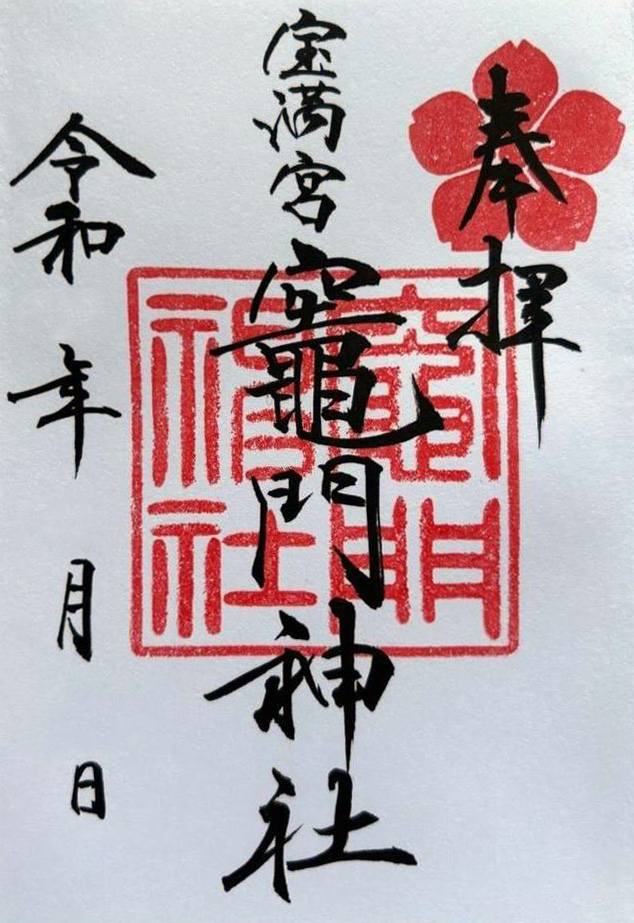 奉拝
宝満宮
竈門神社
竈門神社
令和 年 月 日